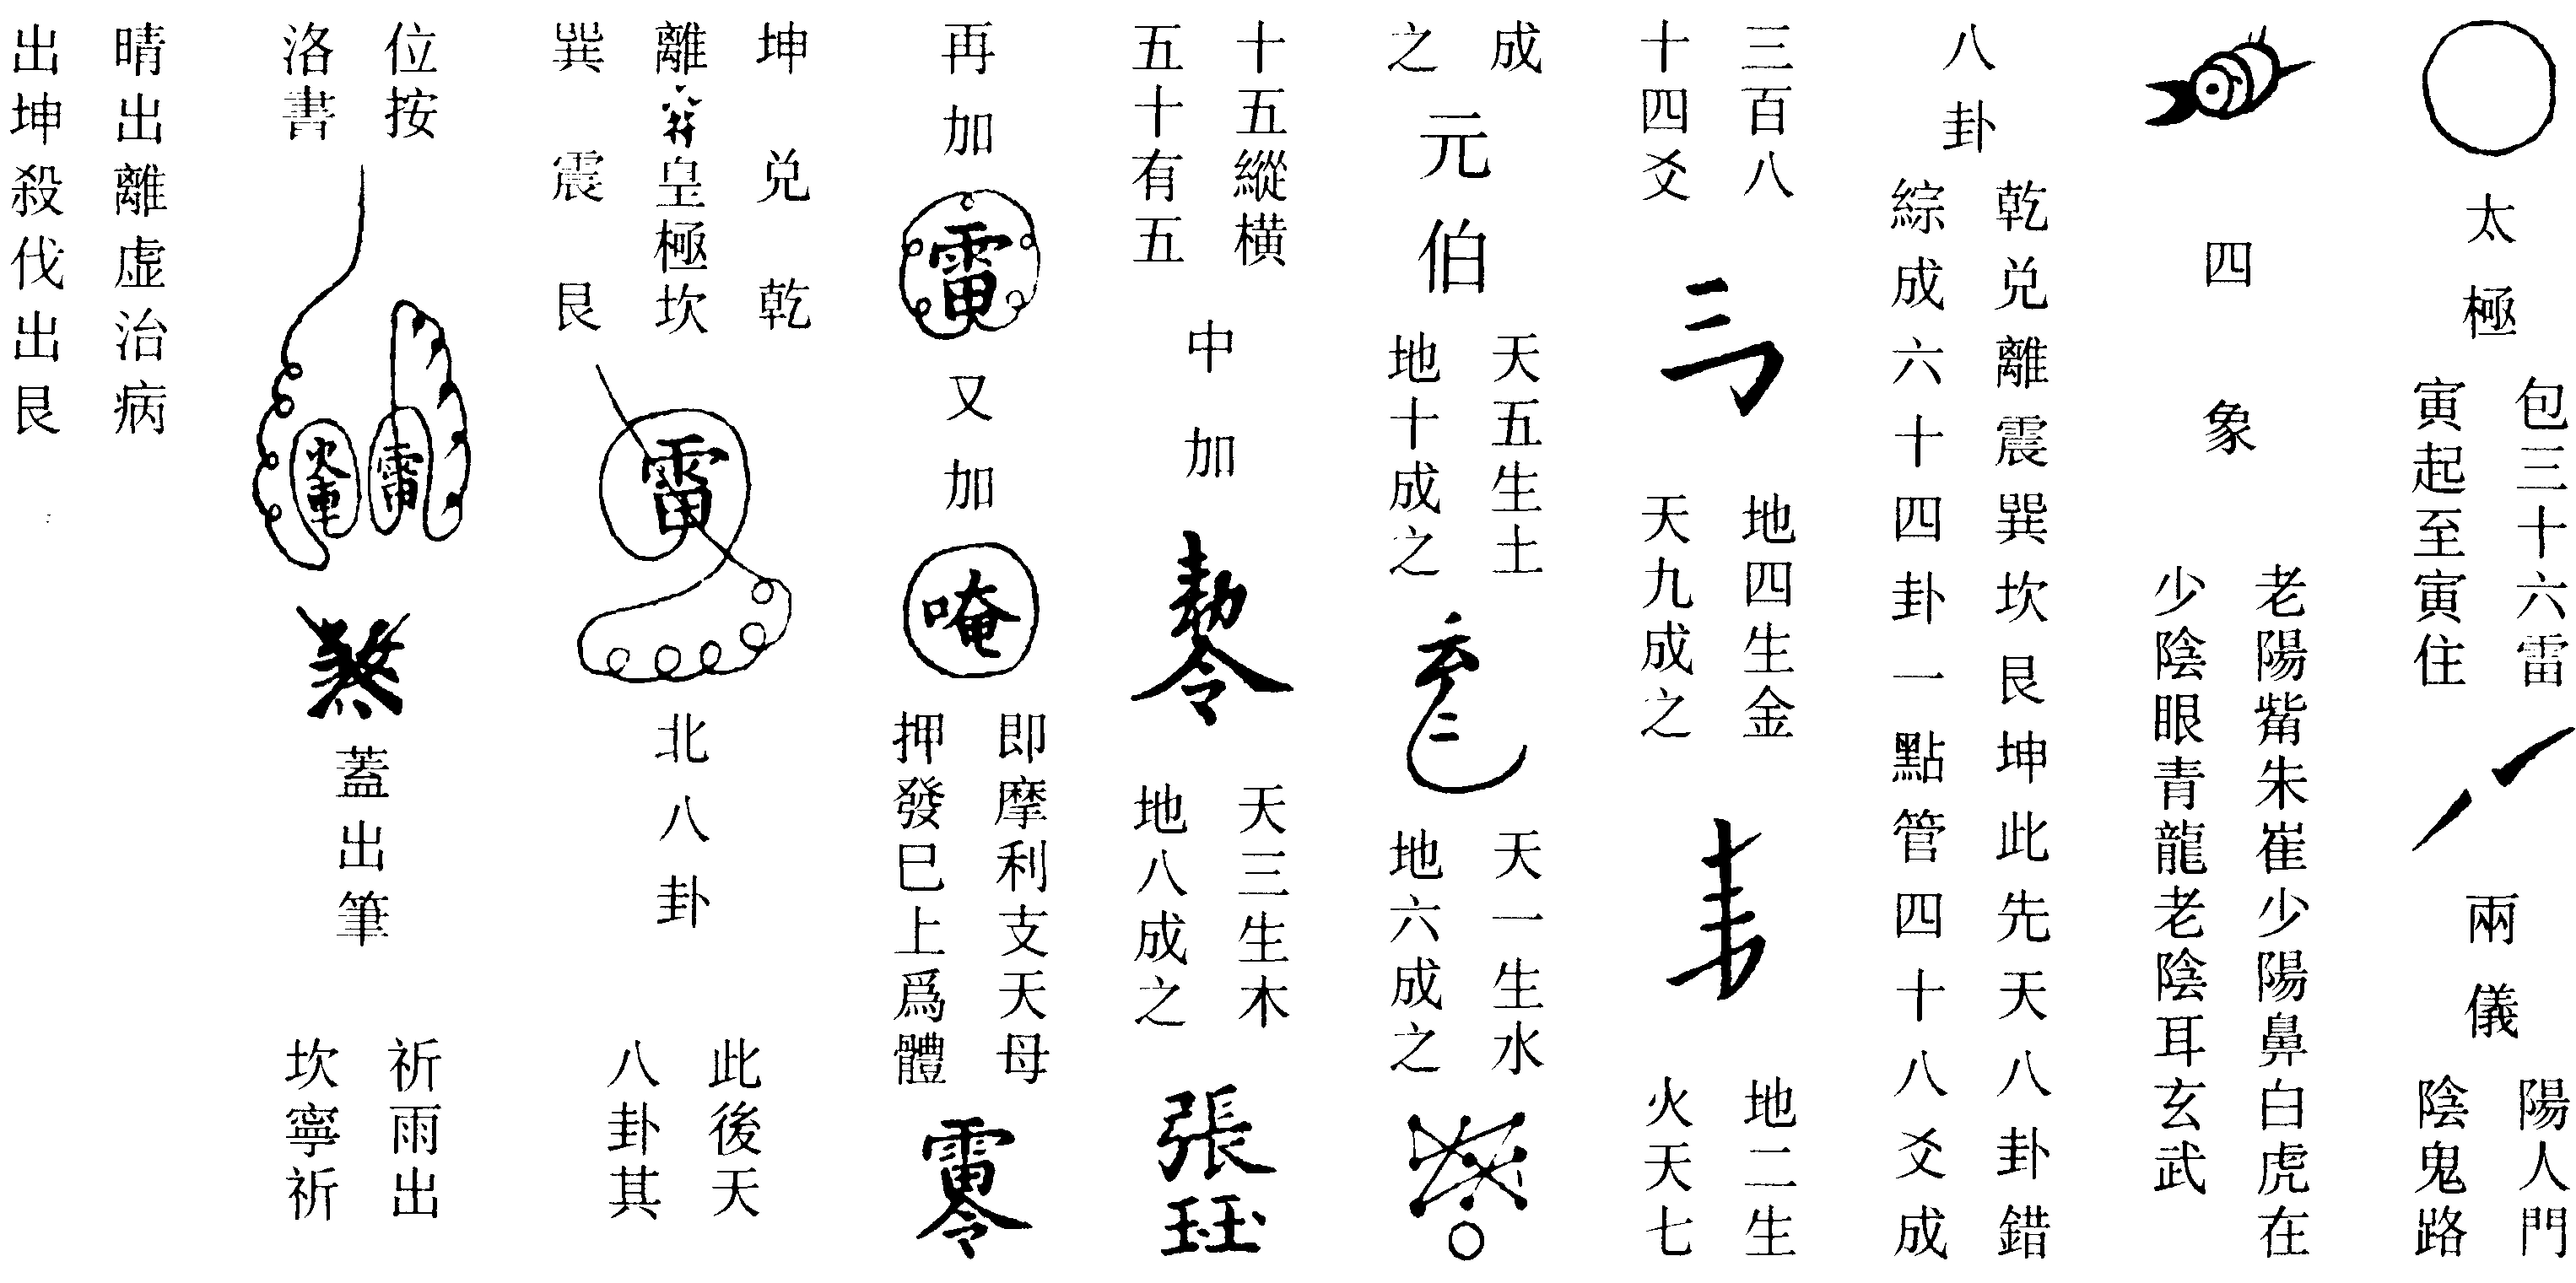 太極
包三十六雷
寅起至寅住
兩儀
陽人門
陰鬼路
四象
老陽觜朱崔少陽鼻白虎在
少陰眼青龍老陰耳玄武
八卦
乾兑離震巽坎艮坤此先天八卦錯
綜成六十四卦一點管四十八爻成
三百八
十四爻
地四生金
天九成之
地二生
火天七
成
之
元伯
天五生土
地十成之
天一生水
地六成之
十五縱横
五十有五
中加
勑令
天三生木
地八成之
張珏
再加
雷
又加
唵
即摩利支天母
押發巳上爲體
雷令
坤兑乾
離皇極坎
巽震艮
雷
北八卦
此後天
八卦其
位按
洛書
雷
火車
煞
蓋出筆
祈雨出
坎寧祈
晴出離虚治病
出坤殺伐出艮